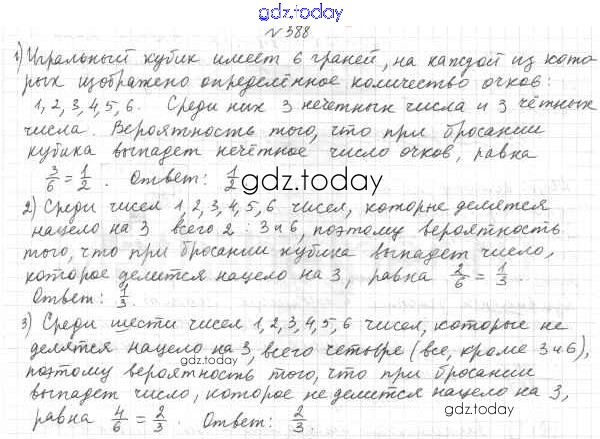 gdz.today
№388
1) Игральный кубик имеет 6 граней, на каждой из кото
рых изображено определённое количество очков:
1, 2, 3, 4, 5, 6. Среди них 3 нечетных числа и 3 чётных
числа. Вероятность того, что при бросании
кубика выпадет нечётное число очков, равна
3/6 = 1/2. Ответ: 1/2
gdz.today
2) Среди чисел 1, 2, 3, 4, 5, 6 чисел, которые делятся
нацело на 3 всего 2 : 3 и 6, поэтому вероятность
того, что при бросании кубика выпадет число,
которое делится нацело на 3, равна 2/6 = 1/3.
Ответ: 1/3.
3) Среди шести чисел 1, 2, 3, 4, 5, 6 чисел, которые не
делятся нацело на 3, всего четыре (все, кроме 3 и 6),
gdz.today
поэтому вероятность того, что при бросании
выпадет число, которое не делится нацело на 3,
равна 4/6 = 2/3. Ответ: 2/3.
gdz.today